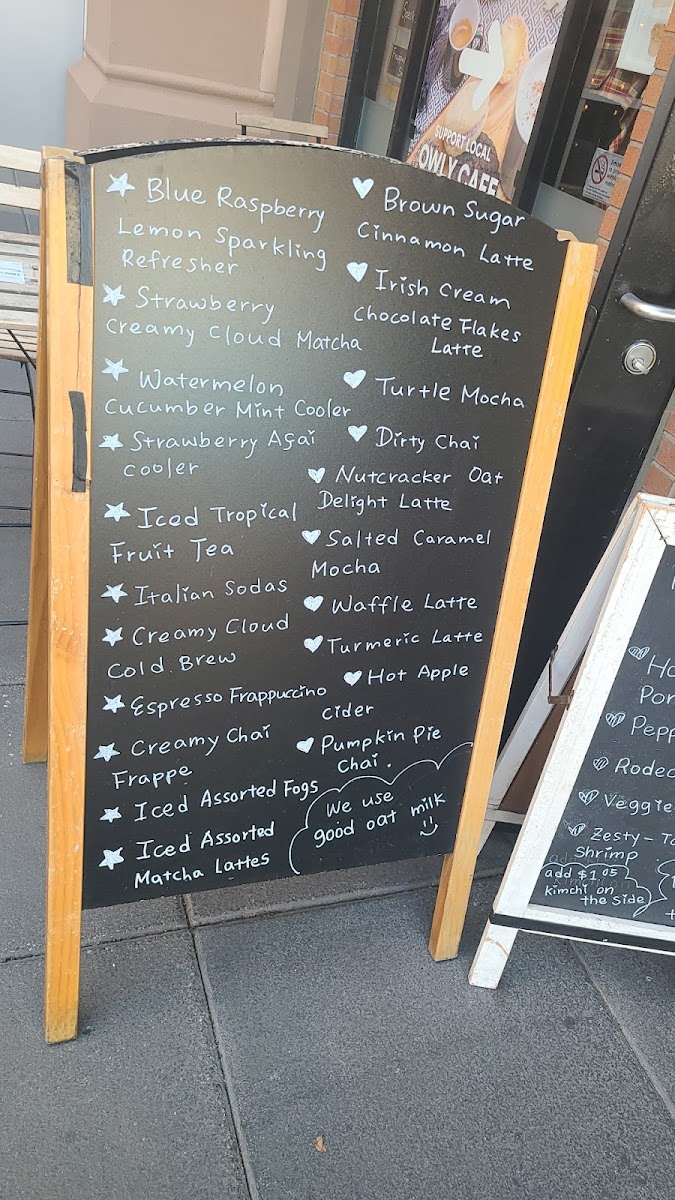 SUPPORT LOCAL
OWLY CAFE
Blue Raspberry
Lemon Sparkling
Refresher
Strawberry
Creamy Cloud Matcha
Watermelon
Cucumber Mint Cooler
Strawberry Açai
cooler
Iced Tropical
Fruit Tea
Italian Sodas
Creamy Cloud
Cold Brew
Espresso Frappuccino
Creamy Chai
Frappe
Iced Assorted Fogs
Iced Assorted
Matcha Lattes
Brown Sugar
Cinnamon Latte
Irish Cream
Chocolate Flakes
Latte
Turtle Mocha
Dirty Chai
Nutcracker Oat
Delight Latte
Salted Caramel
Mocha
Waffle Latte
Turmeric Latte
Hot Apple
cider
Pumpkin Pie
Chai.
We use
good oat milk
Ho
Por
Pepp
Rodeo
Veggie
Zesty-To
Shrimp
add $1.05
kimchi on
the side